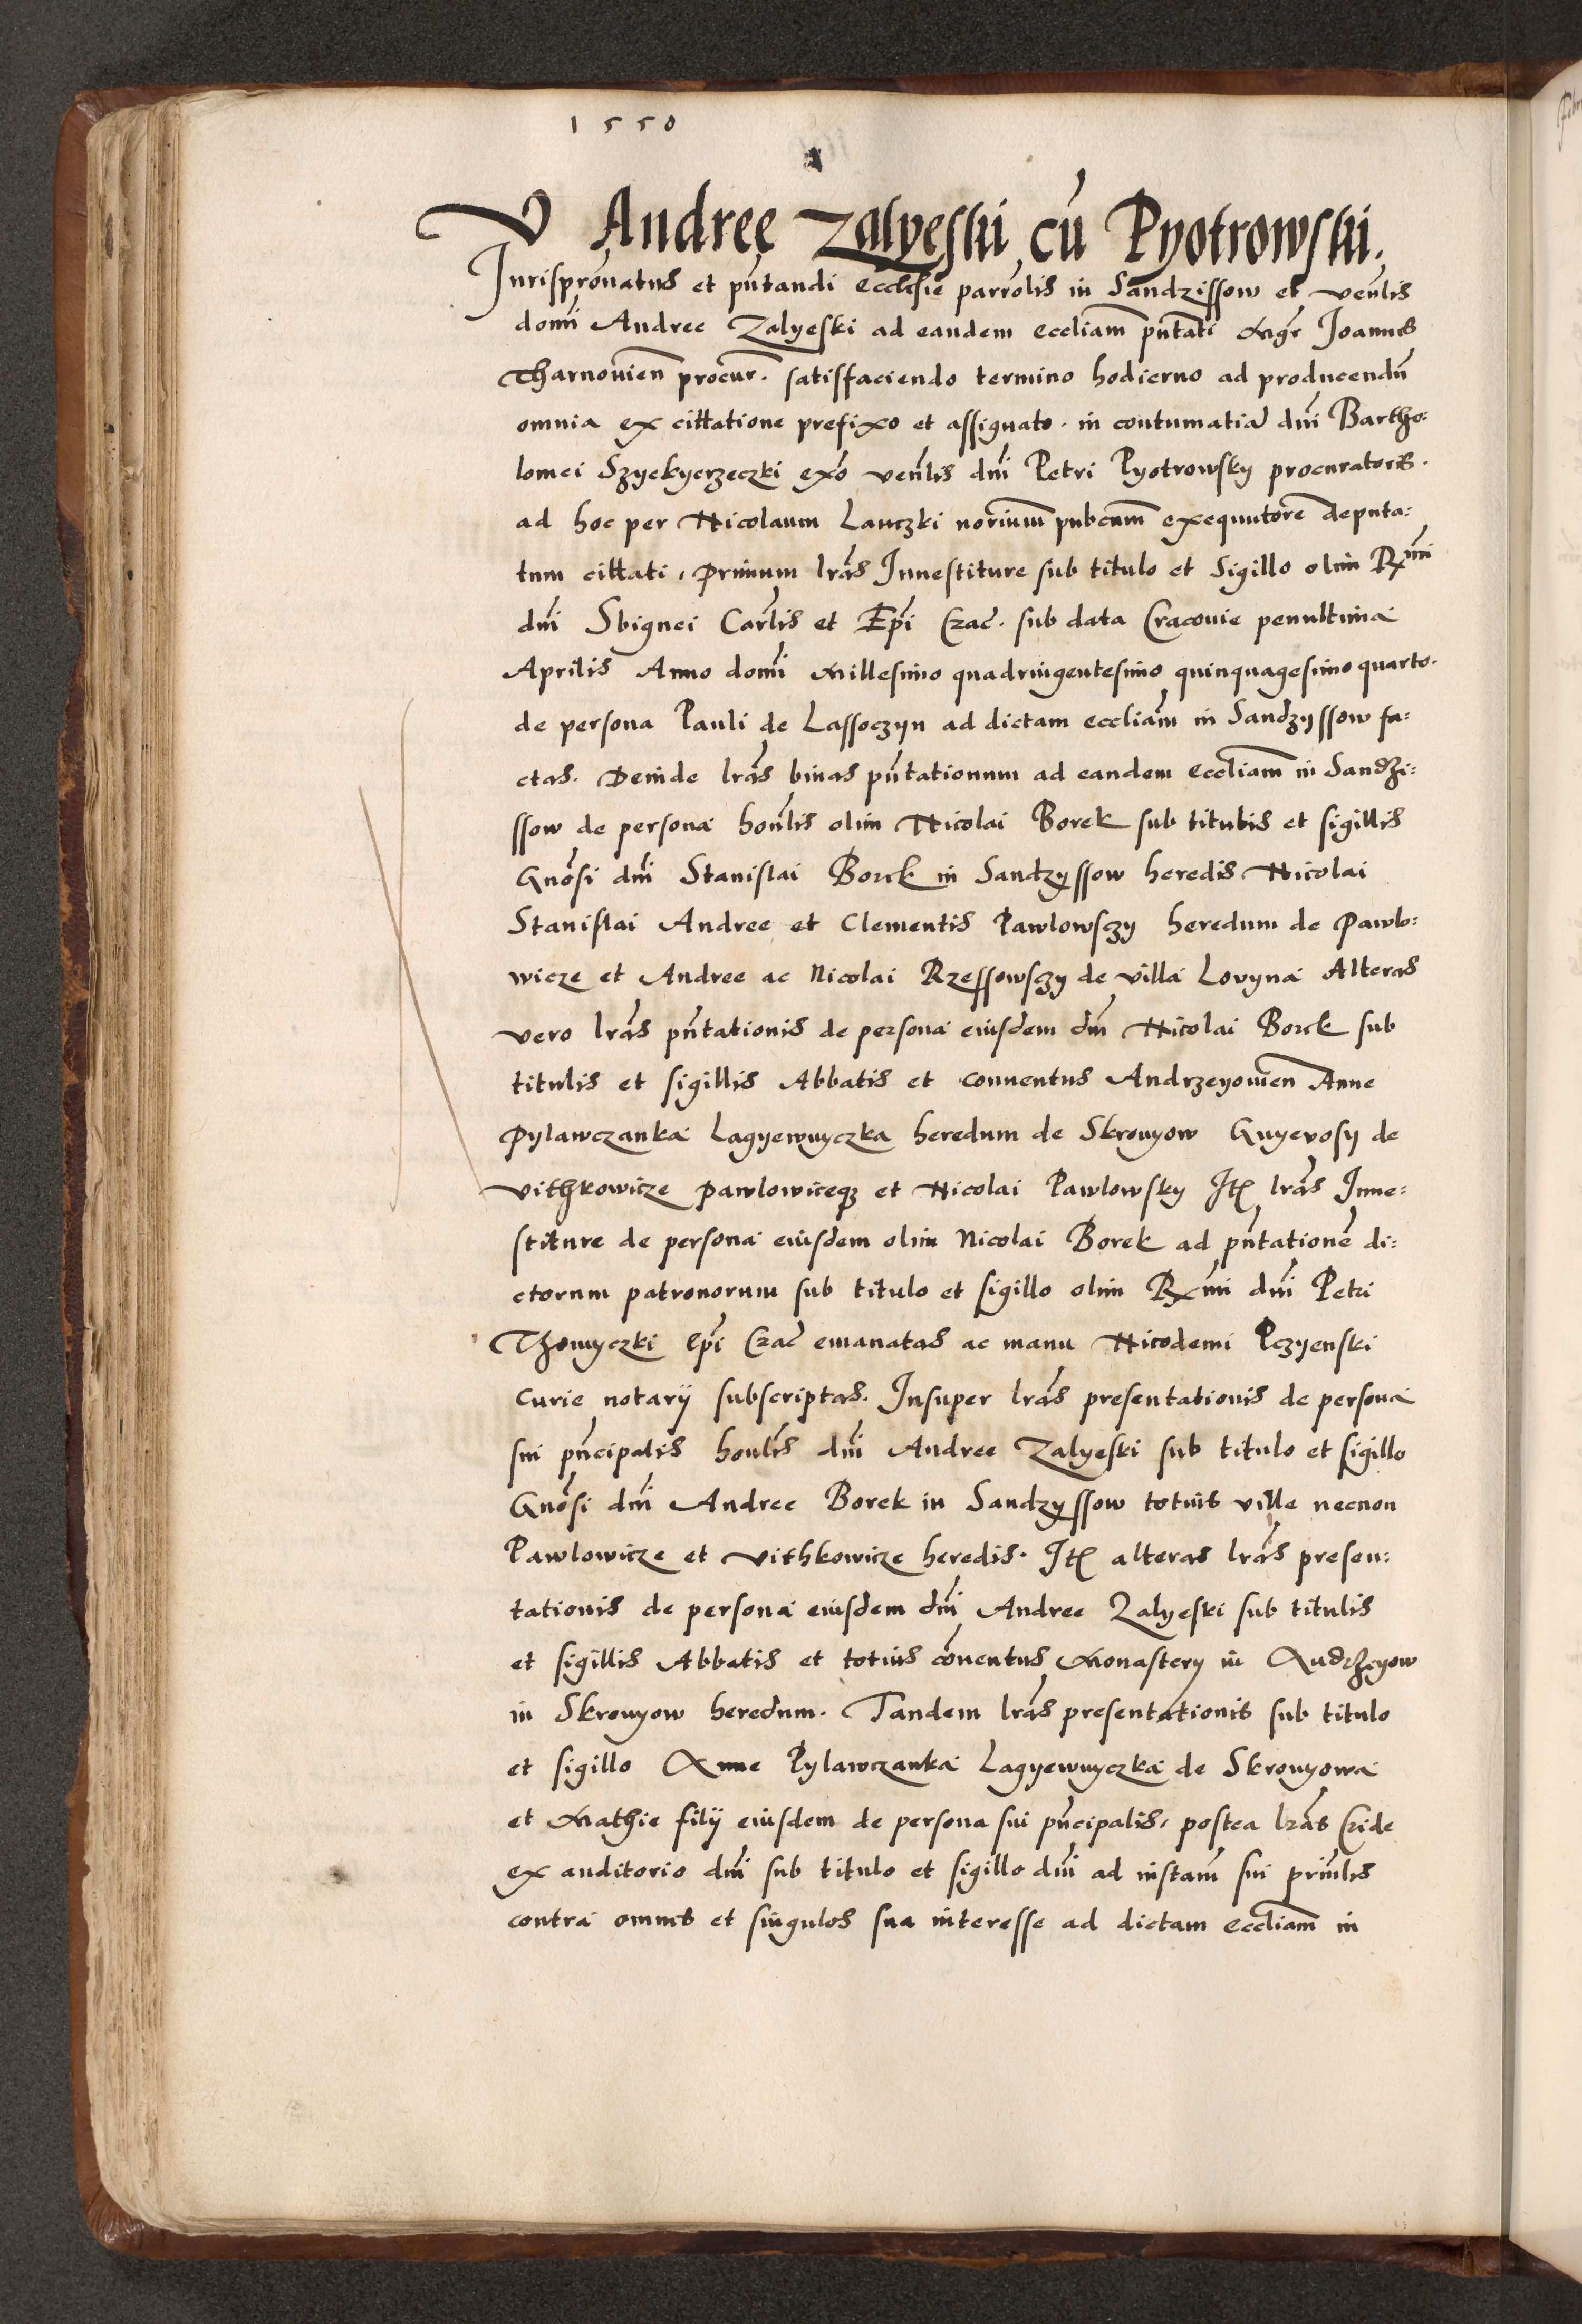 1550
V Andree Zalyeski cū Pyotrowski.
Jurisprōnatus et pn̄tandi ecclesie parrōlis in Sandzissow et ven̄lis
domī Andree Zalyeski ad eandem eccliam̄ pn̄tati Mgr̄ Joannes
Tharnouien̄ procur̄. satisfaciendo termino hodierno ad producendū
omnia ex cittatione prefixo et assignato. in contumatia dnī Bartho:
lomei Szyekyerzeczki ex̄o ven̄lis dnī Petri Pyotrowsky procuratoris.
ad hoc per Nicolaum Lanczki norium̄ pubcum̄ exequutorē deputa:
tum cittati, Primum lrās Inuestiture sub titulo et Sigillo olim Rmi
dnī Sbignei Carl̄is et Epī Crac̄. sub data Cracouie penultima
Aprilis Anno domī Millesimo quadringentesimo quinquagesimo quarto.
de persona Pauli de Lassoczyn ad dictam eccliam̄ in Sandzyssow fa:
ctas. Deinde lrās binas pn̄tationum ad eandem eccliam̄ in Sandzi:
ssow de persona hon̄lis olim Nicolai Borek sub titulis et sigillis
Gnōsi dnī Stanislai Borek in Sandzyssow heredis Nicolai
Stanislai Andree et Clementis Pawlowsczy heredum de Pawlo:
wicze et Andree ac Nicolai Rzessowsczy de villa Lovyna Alteras
vero lrās pn̄tationis de persona eiusdem dnī Nicolai Borek sub
titulis et sigillis Abbatis et conuentus Andrzeyowien̄ Anne
Pylawczanka Lagyewnyczka heredum de Skronyow Gnyevosy de
Vithkowicze Pawlowiceqz et Nicolai Pawlowsky Itē lrās Inue:
stiture de persona eiusdem olim Nicolai Borek ad pn̄tationē di:
ctorum patronorum sub titulo et sigillo olim Rmi dnī Petri
Thomyczki Epī Crac̄ emanatas ac manu Nicodemi Pczyenski
Curie notarij subscriptas. Insuper lrās presentationis de persona
sui pn̄cipalis honl̄is dnī Andree Zalyeski sub titulo et sigillo
Gnōsi dnī Andree Borek in Sandzyssow totius ville necnon
Pawlowicze et Vithkowicze heredis. Itē alteras lrās presen:
tationis de persona eiusdem dnī Andree Zalyeski sub titulis
et sigillis Abbatis et totius cōuentus Monastery in Andrzeyow
in Skronyow heredum. Tandem lrās presentationis sub titulo
et sigillo Anne Pylawczanka Lagyewnyczka de Skronyowa
et Mathie filij eiusdem de persona sui pn̄cipalis, postea lrās Cride
ex auditorio dnī sub titulo et sigillo dnī ad instam̄ sui prin̄lis
contra omnes et singulos sua interesse ad dictam eccliam̄ in